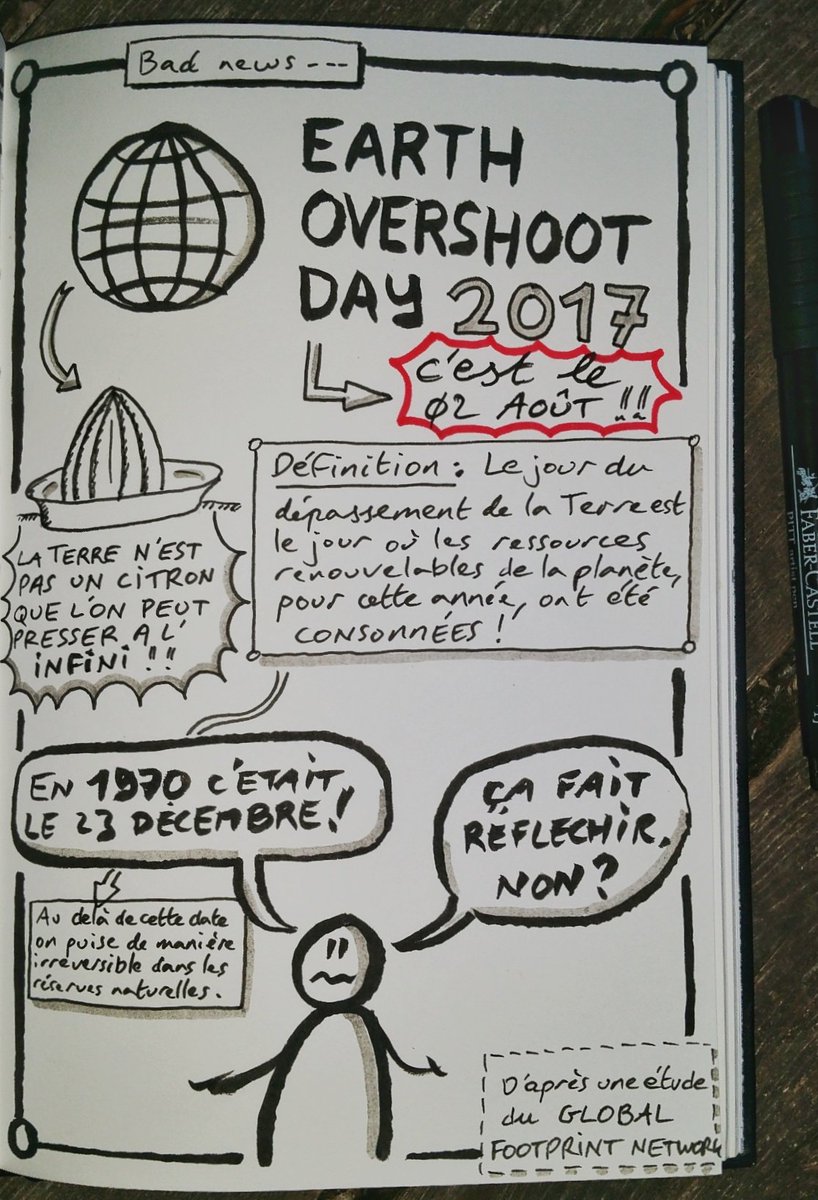 Bad news ---
EARTH
OVERSHOOT
DAY 2017
c'est le
02 AOÛT !!
Définition : Le jour du
dépassement de la Terre est
le jour où les ressources
renouvelables de la planète,
pour cette année, ont été
CONSONNÉES !
LA TERRE N'EST
PAS UN CITRON
QUE L'ON PEUT
PRESSER A L'
INFINI !!
EN 1970 C'ÉTAIT
LE 23 DÉCEMBRE !
ÇA FAIT
RÉFLECHIR,
NON ?
Au delà de cette date
on puise de manière
irréversible dans les
réserves naturelles.
D'après une étude
du GLOBAL
FOOTPRINT NETWORK
FABER-CASTELL
PITT artist pen